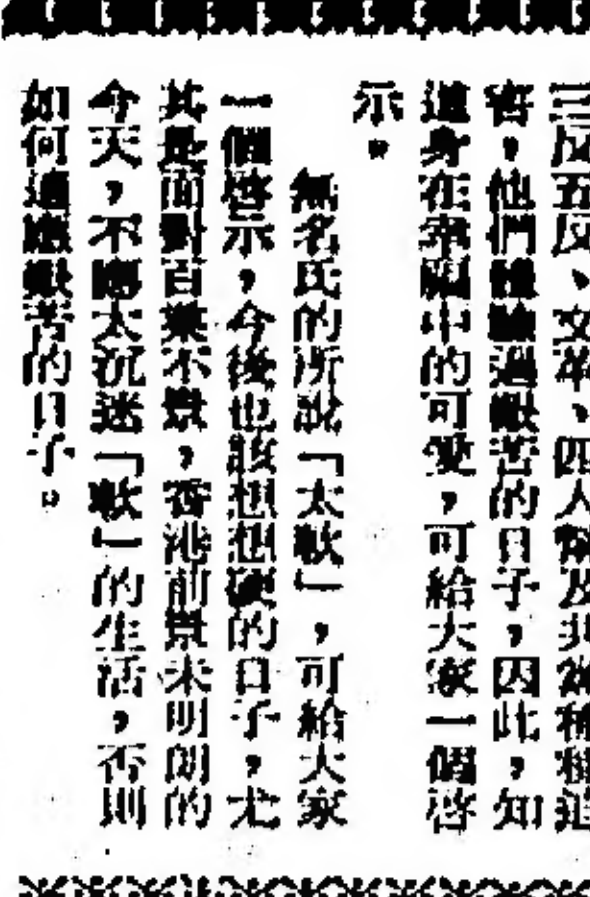 三反五反、文革、四人幫及共幹種種迫
害,他們體驗過艱苦的日子,因此,知
道身在牢獄中的可愛,可給大家一個啓
示。
無名氏的所說「太軟」,可給大家
一個啓示,今後也該想想硬的日子,尤
其是面對百業不景,香港前景未明朗的
今天,不能太沉迷「軟」的生活,否則
如何適應艱苦的日子。